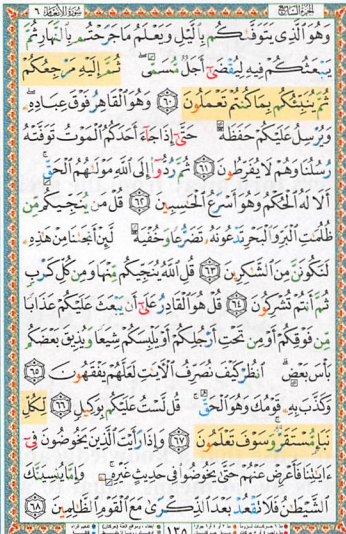 الجزء السابع
سورة الأنعام ٦
وَهُوَ الَّذِي يَتَوَفَّىٰكُم بِالَّيْلِ وَيَعْلَمُ مَا جَرَحْتُم بِالنَّهَارِ ثُمَّ
يَبْعَثُكُمْ فِيهِ لِيُقْضَىٰٓ أَجَلٌ مُّسَمًّى ۖ ثُمَّ إِلَيْهِ مَرْجِعُكُمْ
ثُمَّ يُنَبِّئُكُم بِمَا كُنتُمْ تَعْمَلُونَ ٦٠ وَهُوَ الْقَاهِرُ فَوْقَ عِبَادِهِ ۖ
وَيُرْسِلُ عَلَيْكُمْ حَفَظَةً حَتَّىٰٓ إِذَا جَآءَ أَحَدَكُمُ الْمَوْتُ تَوَفَّتْهُ
رُسُلُنَا وَهُمْ لَا يُفَرِّطُونَ ٦١ ثُمَّ رُدُّوٓا إِلَى اللَّهِ مَوْلَىٰهُمُ الْحَقِّ ۚ
أَلَا لَهُ الْحُكْمُ وَهُوَ أَسْرَعُ الْحَٰسِبِينَ ٦٢ قُلْ مَن يُنَجِّيكُم مِّن
ظُلُمَٰتِ الْبَرِّ وَالْبَحْرِ تَدْعُونَهُ تَضَرُّعًا وَخُفْيَةً لَّئِنْ أَنجَىٰنَا مِنْ هَٰذِهِ
لَنَكُونَنَّ مِنَ الشَّٰكِرِينَ ٦٣ قُلِ اللَّهُ يُنَجِّيكُم مِّنْهَا وَمِن كُلِّ كَرْبٍ
ثُمَّ أَنتُمْ تُشْرِكُونَ ٦٤ قُلْ هُوَ الْقَادِرُ عَلَىٰٓ أَن يَبْعَثَ عَلَيْكُمْ عَذَابًا
مِّن فَوْقِكُمْ أَوْ مِن تَحْتِ أَرْجُلِكُمْ أَوْ يَلْبِسَكُمْ شِيَعًا وَيُذِيقَ بَعْضَكُم
بَأْسَ بَعْضٍ ۗ انظُرْ كَيْفَ نُصَرِّفُ الْآيَٰتِ لَعَلَّهُمْ يَفْقَهُونَ ٦٥
وَكَذَّبَ بِهِ قَوْمُكَ وَهُوَ الْحَقُّ ۚ قُل لَّسْتُ عَلَيْكُم بِوَكِيلٍ ٦٦ لِّكُلِّ
نَبَإٍ مُّسْتَقَرٌّ ۚ وَسَوْفَ تَعْلَمُونَ ٦٧ وَإِذَا رَأَيْتَ الَّذِينَ يَخُوضُونَ فِىٓ
ءَايَٰتِنَا فَأَعْرِضْ عَنْهُمْ حَتَّىٰ يَخُوضُوا فِي حَدِيثٍ غَيْرِهِ ۚ وَإِمَّا يُنسِيَنَّكَ
الشَّيْطَٰنُ فَلَا تَقْعُدْ بَعْدَ الذِّكْرَىٰ مَعَ الْقَوْمِ الظَّٰلِمِينَ ٦٨
١٣٥